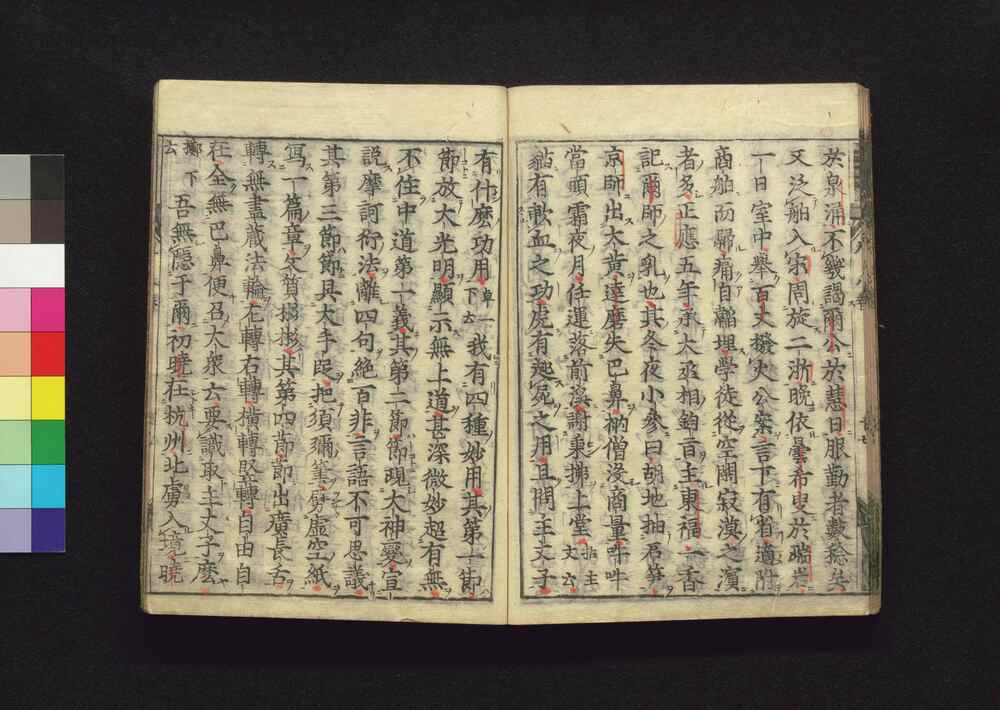 於泉涌不幾謁爾公於慧日服勤者數稔矣
又泛舶入宋周旋二浙晚依曇希叟於瑞岩
一日室中舉百丈撥火公案言下有省遒附
商舶而歸痛自韜埋學徒從空閑寂漠之濱
者多正應五年承大丞相鈞旨主東福一香
記爾師之乳也其冬夜小參曰胡地抽君笋
京師出大黄達磨失巴鼻衲僧沒商量吽吽
當頭霜夜月任運落前溪謝乘拂上堂拈主丈云
猫有軟血之功虎有起死之用且問主丈子
有什麼功用卓一下云我有四種妙用其第一節
節放大光明顯示無上道甚深微妙超有無
不住中道第一義其第二節節現大神變宣
說摩訶衍法離四句絕百非言語不可思議
其第三節節具大手段把須彌筆劈虛空紙
寫一篇章文質彬彬其第四節節出廣長舌
轉無盡藏法輪左轉右轉橫轉竪轉自由自
在全無巴鼻便召大衆云要識取主丈子麼
擲下云吾無隱乎爾初曉在杭州北虜入境曉